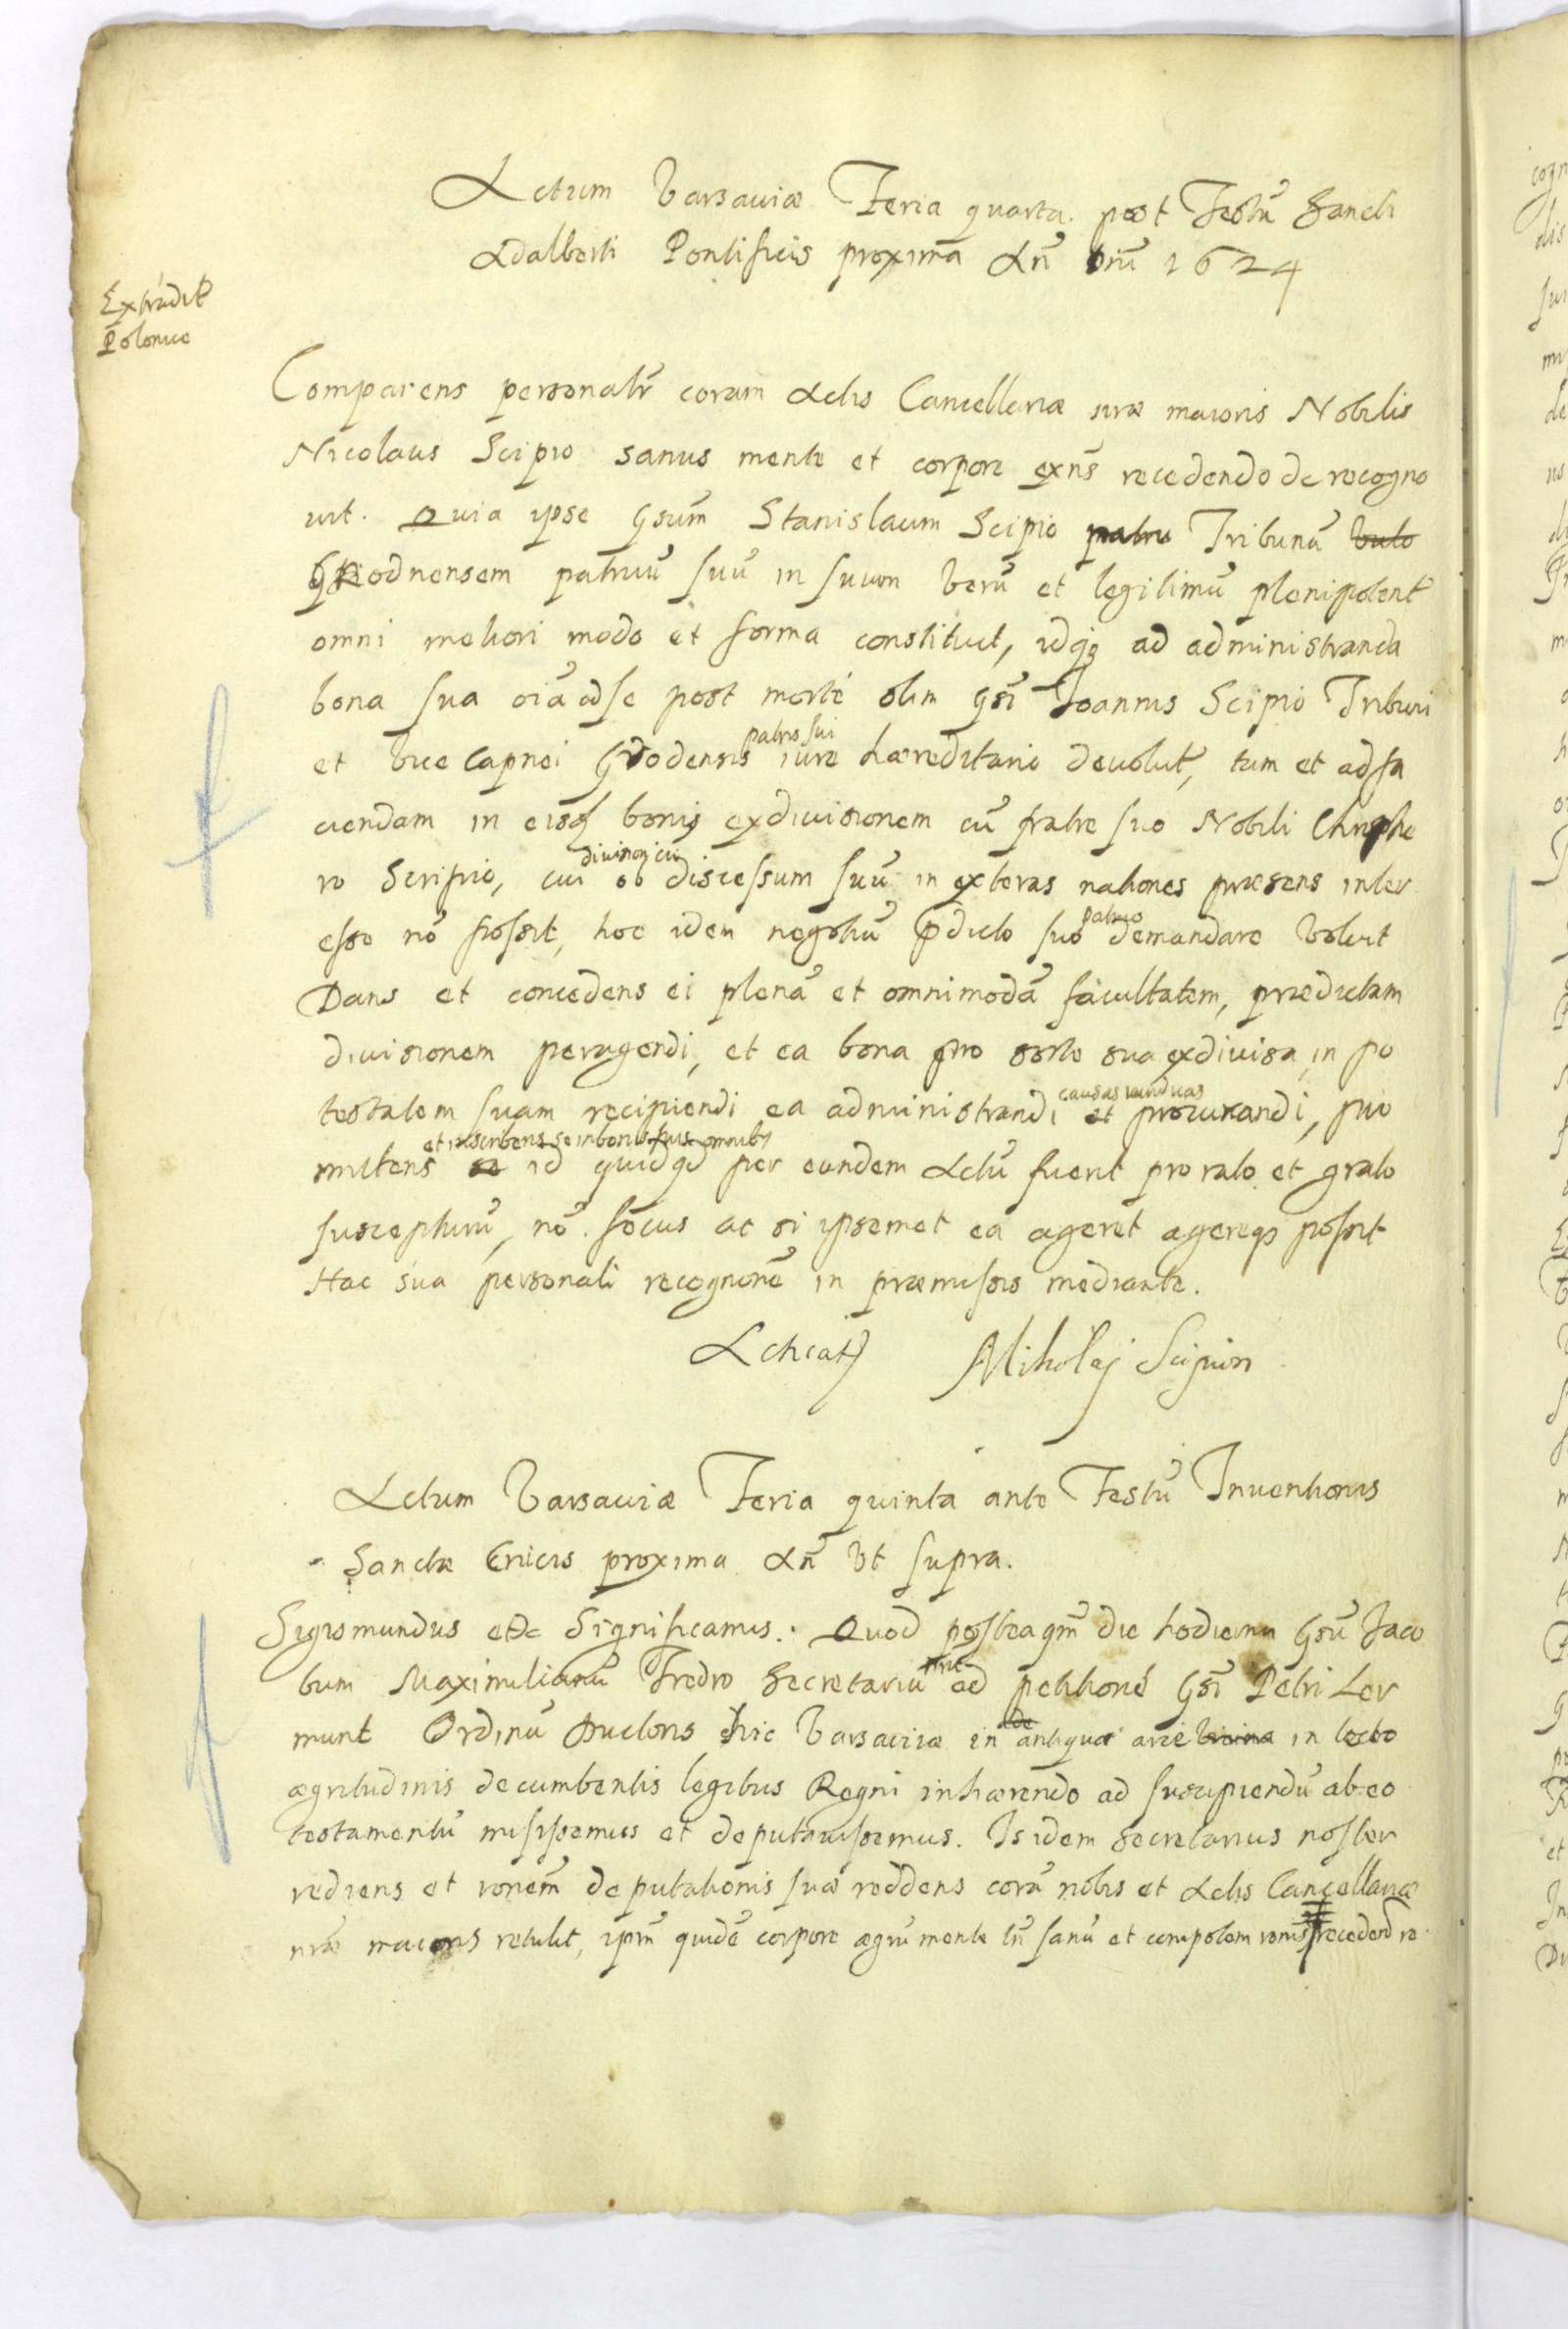 Actum Varsaviæ Feria quarta post Festũ Sancti
Adalberti Pontificis proxima Añ Dnĩ 1624
Extradit
Polonice
Comparens personalr̃ coram Actis Cancellariæ nræ maioris Nobilis
Nicolaus Scipio sanus mente et corpore exñs recedendo de recogno
uit. Quia ipse Gsum̃ Stanislaum Scipio patru Tribunũ
Grodnensem patruũ suũ in suum verũ et legitimũ plenipotent̃
omni meliori modo et forma constituit, idqȝ ad administranda
bona sua oĩa ad se post mortẽ olim Gsĩ Joannis Scipio Tribuni
et Vice Capnei Grodensis patris sui iure hæreditario deuolut̃, tum et ad fa
ciendam in eisd bonis exdiuisionem cũ fratre suo Nobili Chrõpho
ro Scipio, cui diuisioni cũ ob discessum suũ in exteras nationes præsens inter
esse nõ possit, hoc idem negotiũ pdicto suo patruo demandare voluit
Dans et concedens ei plenã et omnimodã facultatem, prædictam
diuisionem peragendi, et ea bona pro sorte sua exdiuisa, in po
testatem suam recipiendi ea administrandi causas iuridicas et procurandi, pro
mittens et inscribens se in bonis suis omnibȝ id quidqd per eundem Actũ fuerit pro rato et grato
suscepturũ, nõ secus ac si ipsemet ea ageret agereqȝ possit
Hac sua personali recognonẽ in præmissis mediante.
Mikołaj Scipion
Actum Varsaviæ Feria quinta ante Festũ Inuentionis
Sanctæ Crucis proxima Añ Vt supra.
Sigismundus etc Significamus. Quod posteaqm̃ die hodierna Gsũ Jaco
bum Maximilianũ Fredro Secretariũ nrũ ad petitionẽ Gsĩ Petri Ler
munt Ordinũ Ductoris, hic Varsaviæ in antiqua arce in lecto
ægritudinis decumbentis legibus Regni inhærendo ad suscipiendũ ab eo
testamentũ misissemus et deputauissemus. Is idem secretarius noster
rediens et ronem̃ deputationis suæ reddens corã nobis et Actis Cancellariæ
nræ maioris retulit, ipm̃ quidẽ corpore ægrũ mente tñ sanũ et compotem ronis recedend re